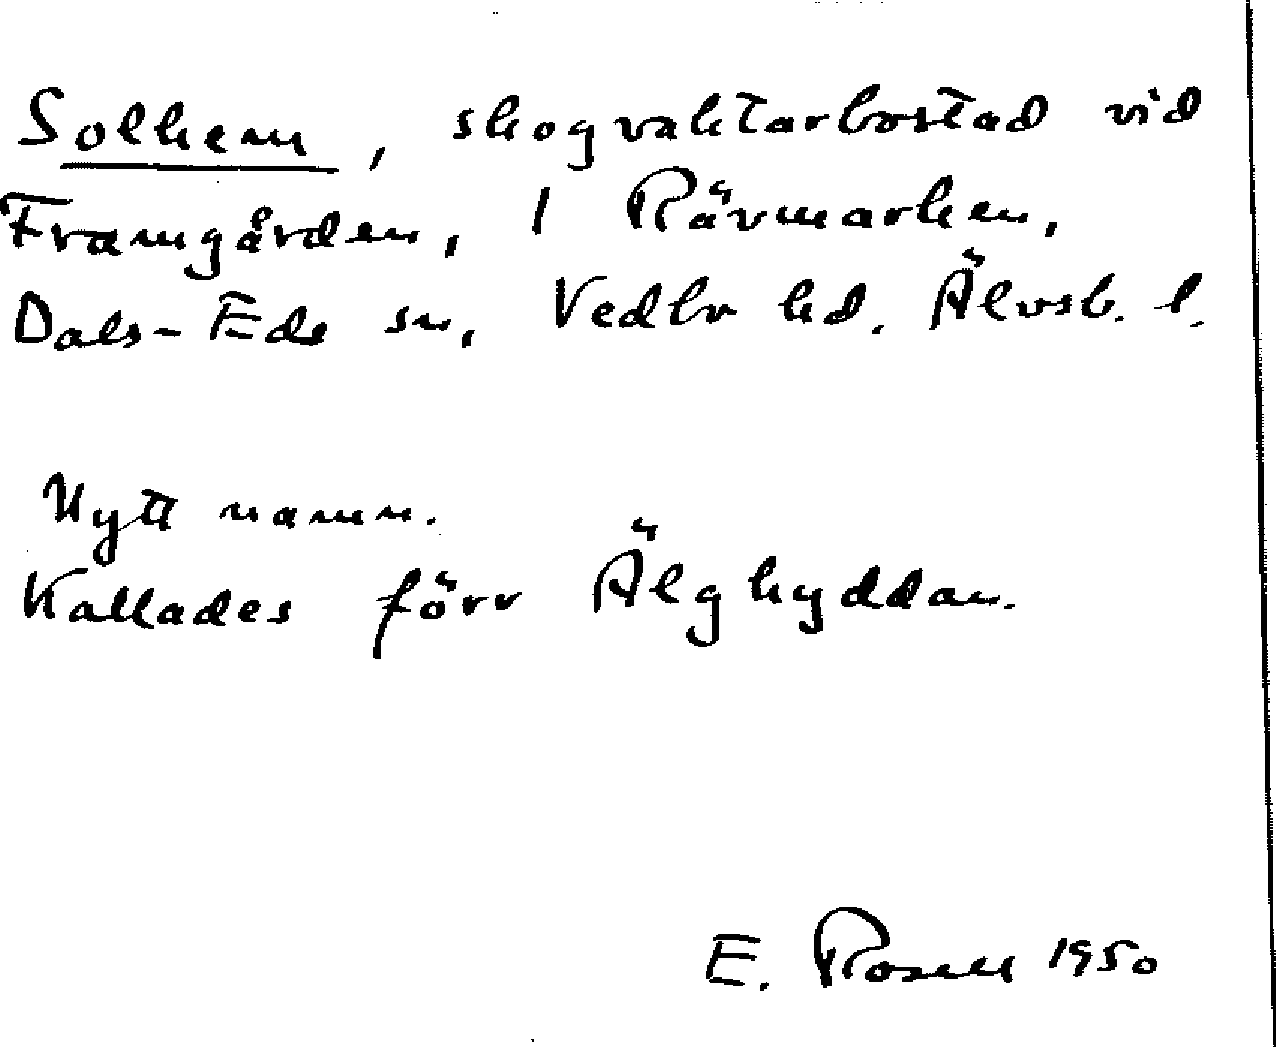 Solhem, skogvaktarbostad vid
Framgården, 1 Rävmarken,
Dals-Eds sn, Vedbo hd. Älvsb. l.
Nytt namn.
Kallades förr Älghyddan.
E. Rosell 1950